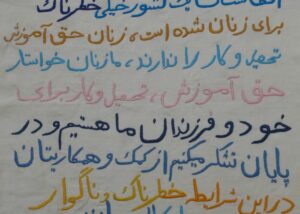 افغانستان یک کشور خیلی خطرناک
برای زنان شده است، زنان حق آموزش
تحصیل و کار را ندارند، ما زنان خواستار
حق آموزش، تحصیل و کار برای
خود و فرزندان ما هستیم و در
پایان تشکر میکنیم از کمک و همکاریتان
در این شرایط خطرناک و ناگوار